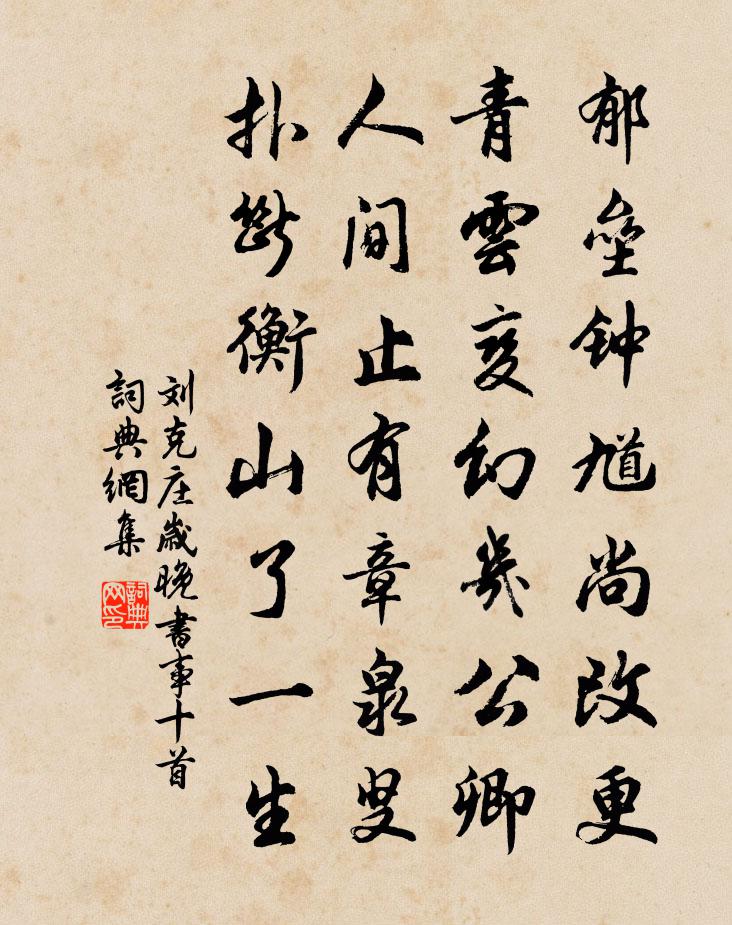 郁壘钟馗尚改更
青雲变幻几公卿
人间止有章泉叟
扑断衡山了一生
刘克庄歳晚書事十首
詞典網集
詞典网印